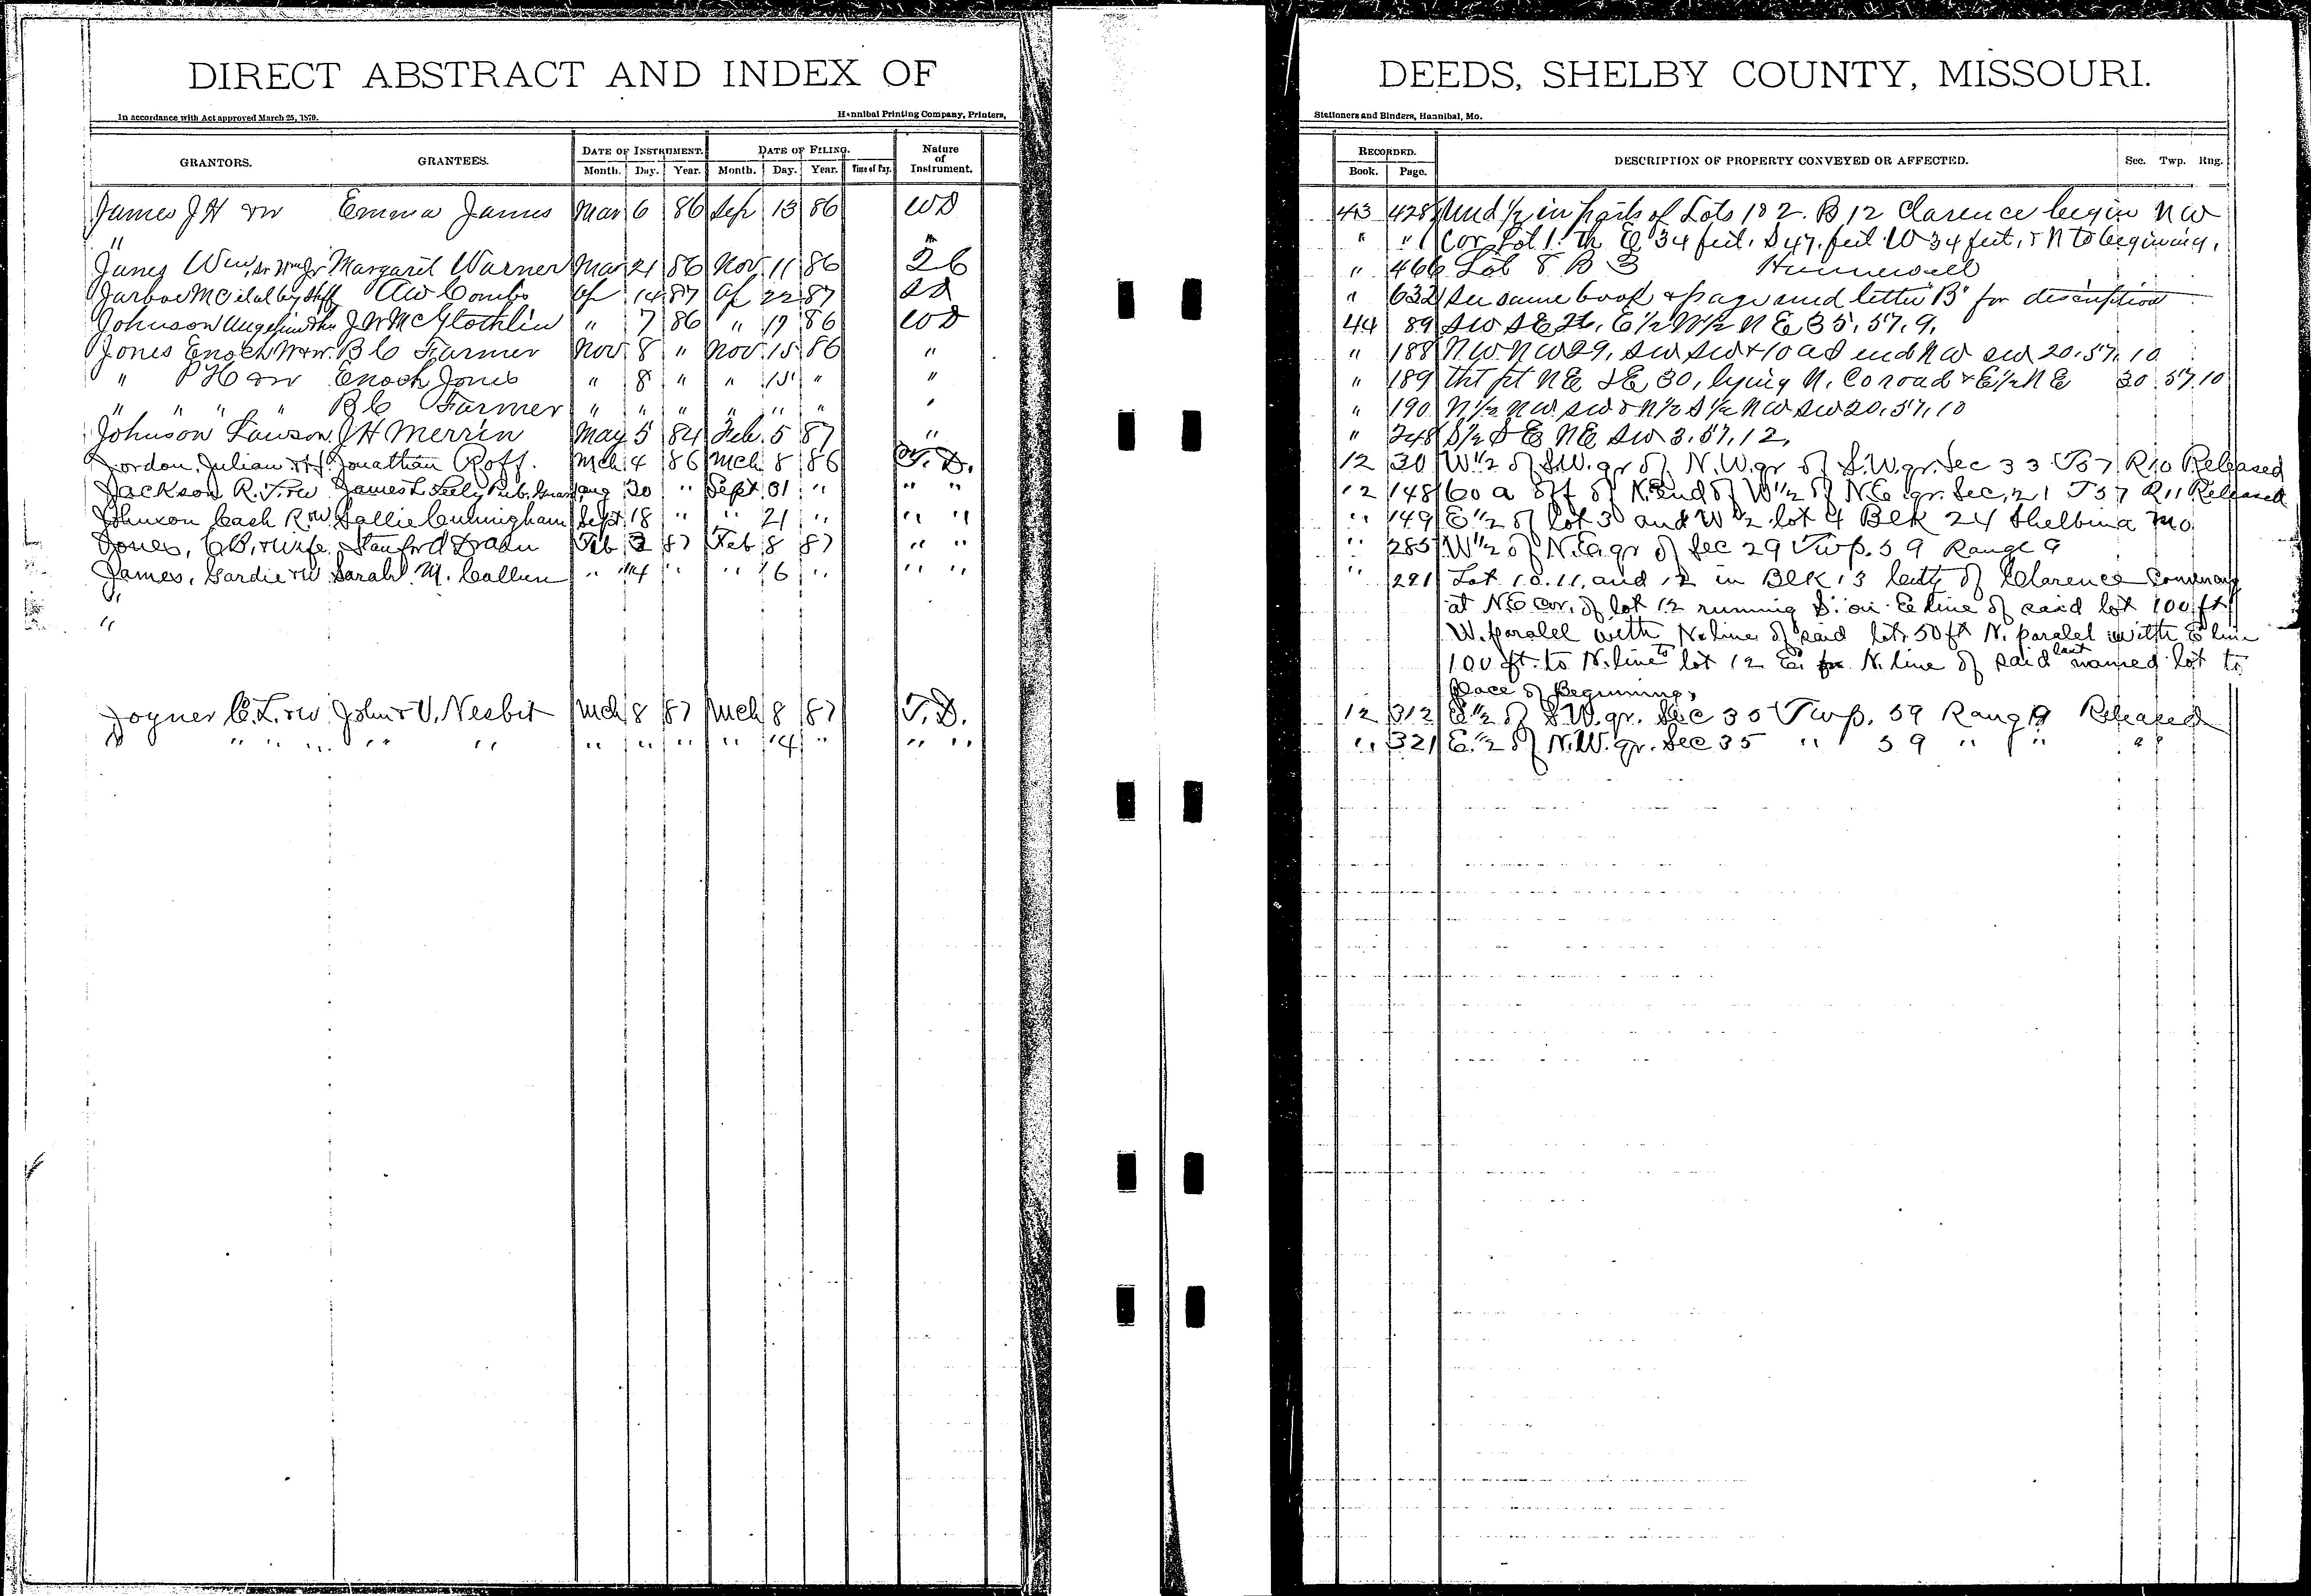 DIRECT ABSTRACT AND INDEX OF DEEDS, SHELBY COUNTY, MISSOURI.
In accordance with Act approved March 25, 1870. Hannibal Printing Company, Printers, Stationers and Binders, Hannibal, Mo.
GRANTORS. GRANTEES. DATE OF INSTRUMENT. DATE OF FILING. Nature of Instrument. RECORDED. DESCRIPTION OF PROPERTY CONVEYED OR AFFECTED. Sec. Twp. Rng.
Month. Day. Year. Month. Day. Year. Time of Day. Book. Page.
James J H & W Emma James Mar 6 86 Sep 13 86 WD 43 428 Und 1/2 in parts of Lots 1 & 2. B 12 Clarence begin N W
" " " " Cor Lot 1. Th E 34 feet, S 47 feet W 34 feet, & N to begining,
Wm Sr Margaret Warner Mar 21 86 Nov 11 86 " 466 Lot 8 B 3 Hunnewell
A W Combs Ap 14 87 Ap 22 87 " 632 See same book & page und letter "B" for description
Johnson J W McGlothlin " 7 86 " 19 86 WD 44 89 E 1/2 W 1/2 N E 35, 57, 9,
Jones Enoch M & W. B C Farmer Nov 8 " Nov 15 86 " " 188 N W N W 29, SW SW & 10 as end N W SW 20, 57, 10
" P H & W Enoch Jones " 8 " " 15 " " " 189 tht pt N E S E 30, lying N. Co road & E 1/2 N E 30 57 10
" " " " B C Farmer " " " " " " " " 190 N 1/2 N W S W & N 1/2 S 1/2 N W S W 20, 57, 10
Johnson Lawson J H Merrin May 5 84 Feb. 5 87 " " 248 S 1/2 S E N E S W 3, 57, 12,
Jordon, Julian Jonathan Roff. Mch 4 86 Mch 8 86 T. D. 12 30 W 1/2 of S.W. qr of N.W. qr of S.W. qr. Sec 33 T 57 R 10 Released
Jackson R. T. & W James L. Seely Pub. Aug 30 " Sept 01 " " " 12 148 60 a off of N. end of W 1/2 of N.E. qr. Sec, 21 T 57 R 11 Released
Johnson Cash R & W Sallie Cunningham Sept 18 " " 21 " " " " 149 E 1/2 of lot 3 and W 1/2 lot 4 Blk 24 Shelbina Mo
Jones, C B, & Wife Stanford Drain Feb 3 87 Feb 8 87 " " " 285 W 1/2 of N.E. qr of Sec 29 Twp. 59 Range 9
James, Gardie & W Sarah M. Cullum " 14 " " 16 " " " " 291 Lot 10. 11, and 12 in Blk 13 City of Clarence Commencing
" at N.E cor. of lot 12 running S. on E line of said lot 100 ft
" W. paralel with N. line of said lots 50 ft N. paralel with E line
100 ft. to N. line to lot 12 E. N. line of said last named lot to
place of Beginning,
Joyner C. L. & W John & V. Nesbit Mch 8 87 Mch 8 87 T. D. 12 312 E 1/2 of S.W. qr. Sec 35 Twp. 59 Rang 9 Released
" " " " " " " " " " 14 " " " " 321 E. 1/2 of N.W. qr. Sec 35 " 59 " " "